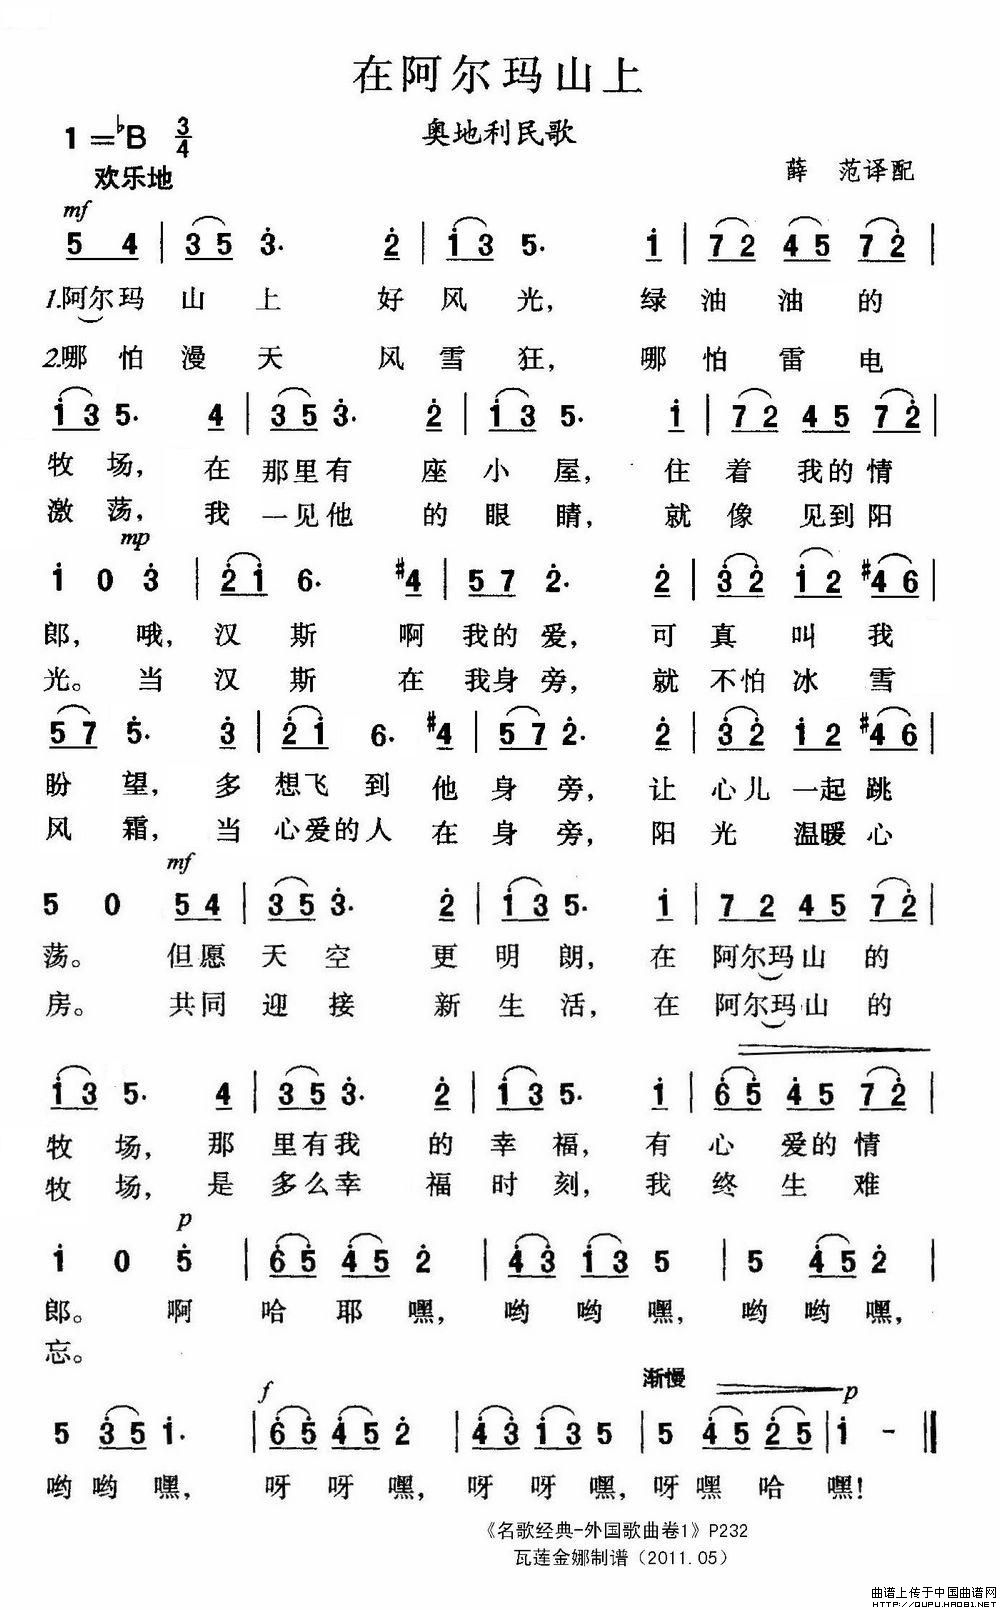 在阿尔玛山上
1=♭B 3/4
奥地利民歌
欢乐地
薛 范译配
mf
5 4 | 3 5 3. 2 | 1 3 5. 1 | 7 2 4 5 7 2 |
1.阿尔玛 山 上 好 风 光, 绿 油 油 的
2.哪 怕 漫 天 风 雪 狂, 哪 怕 雷 电
1 3 5. 4 | 3 5 3. 2 | 1 3 5. 1 | 7 2 4 5 7 2 |
牧 场, 在 那里有 座 小 屋, 住 着 我的 情
激 荡, 我 一见他 的 眼 睛, 就 像 见到 阳
mp
1 0 3 | 2 1 6. #4 | 5 7 2. 2 | 3 2 1 2 #4 6 |
郎, 哦, 汉 斯 啊 我的 爱, 可 真 叫 我
光。 当 汉 斯 在 我身 旁, 就 不怕 冰 雪
5 7 5. 3 | 2 1 6. #4 | 5 7 2. 2 | 3 2 1 2 #4 6 |
盼 望, 多 想飞 到 他 身 旁, 让 心儿 一起 跳
风 霜, 当 心爱的人 在 身 旁, 阳 光 温暖 心
mf
5 0 5 4 | 3 5 3. 2 | 1 3 5. 1 | 7 2 4 5 7 2 |
荡。 但愿 天 空 更 明 朗, 在 阿尔玛山 的
房。 共同 迎 接 新 生 活, 在 阿尔玛山 的
1 3 5. 4 | 3 5 3. 2 | 1 3 5. 1 | 6 5 4 5 7 2 |
牧 场, 那 里有我 的 幸 福, 有 心 爱的 情
牧 场, 是 多么幸 福 时 刻, 我 终 生 难
p
1 0 5 | 6 5 4 5 2 | 4 3 1 3 5 | 5 4 5 2 |
郎。 啊 哈 耶 嘿, 哟 哟 嘿, 哟 哟 嘿,
忘。
f 渐慢 p
5 3 5 1. | 6 5 4 5 2 | 4 3 1 3 5 | 5 4 5 2 5 | 1 - ‖
哟 哟 嘿, 呀 呀 嘿, 呀 呀 嘿, 呀 嘿 哈 嘿!
《名歌经典-外国歌曲卷1》P232
瓦莲金娜制谱（2011.05）
曲谱上传于中国曲谱网
HTTP://QUPU.HAO81.NET